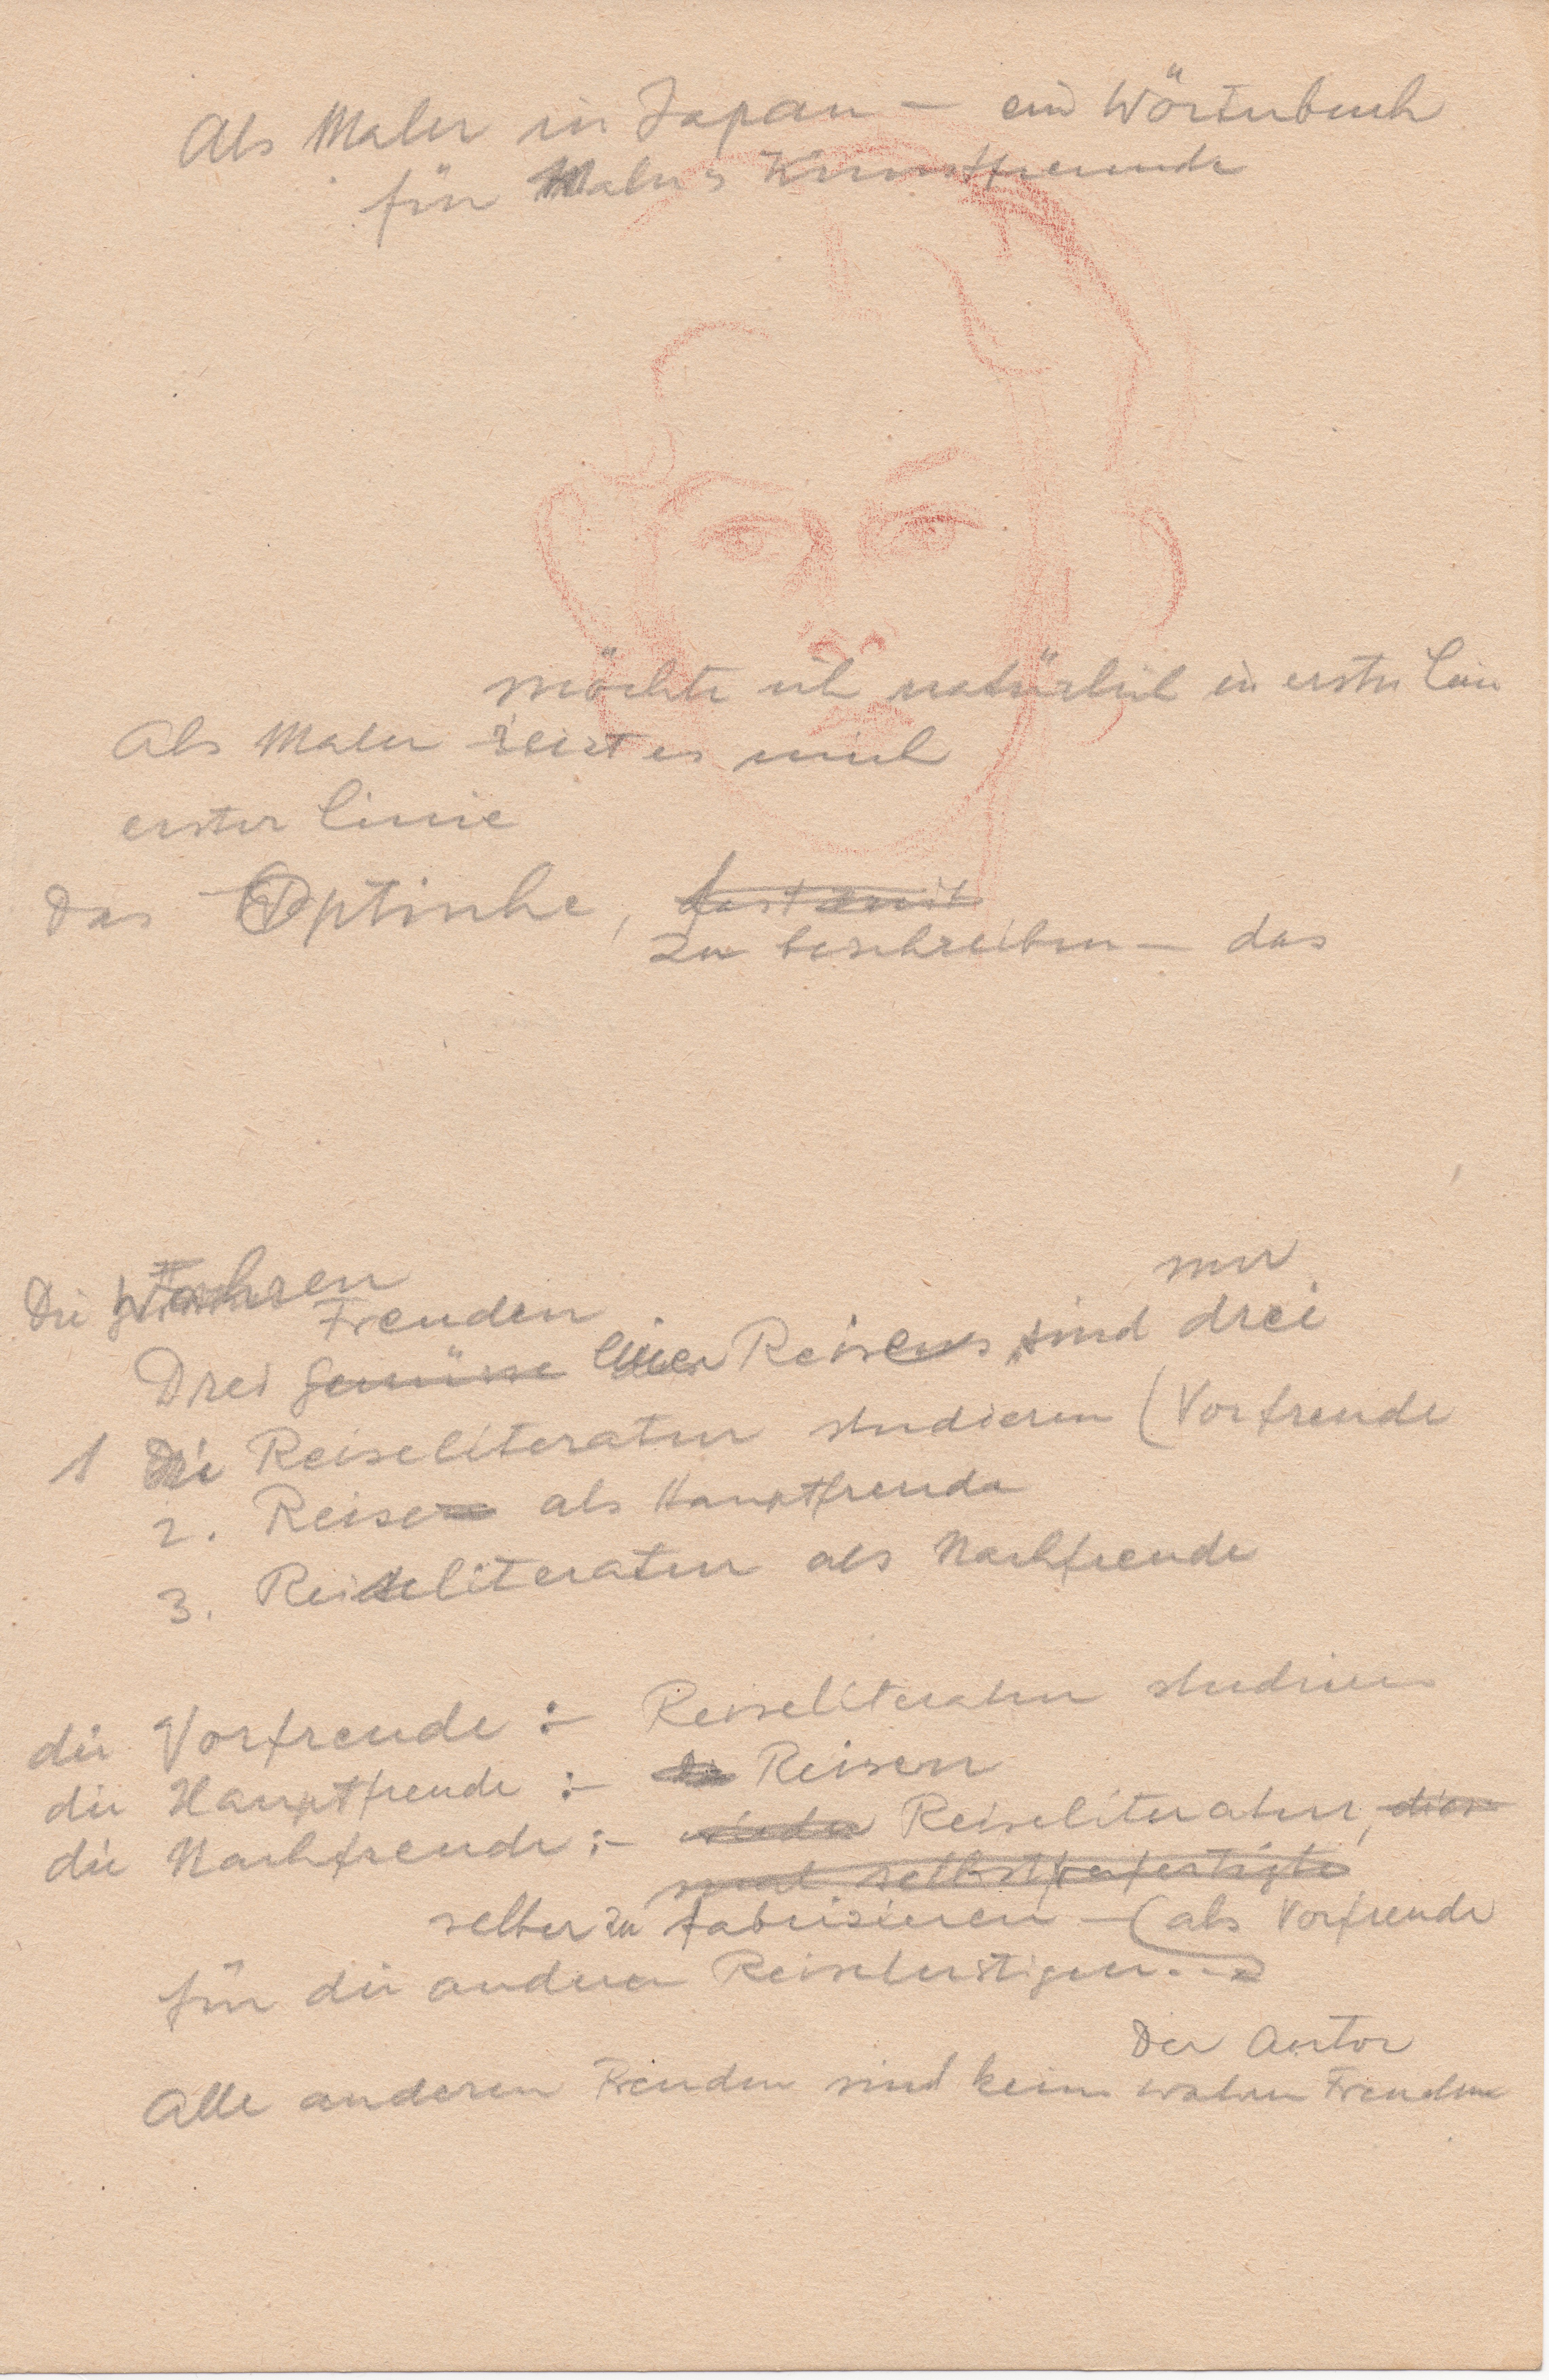 Als Maler in Japan – ein Wörterbuch
für Maler & Kunstfreunde
möchte ich natürlich in erster Lini
Als Maler reizt es mich
erster Linie
Das Optische, fast mit
zu beschreiben – das
Die Wahren
nur
Freuden
Drei Genüsse einer Reise sind drei
1 Die Reiseliteratur studieren (Vorfreude
2. Reisen als Hauptfreude
3. Reiseliteratur als Nachfreude
die Vorfreude :– Reiseliteratur studieren
die Hauptfreude :– Reisen
die Nachfreude :– wieder Reiseliteratur, diese
selbstverfertigte
selber zu fabrizieren – (als Vorfreude
für die anderen Reiselustigen. –)
Der Autor
Alle anderen Freuden sind keine wahren Freuden